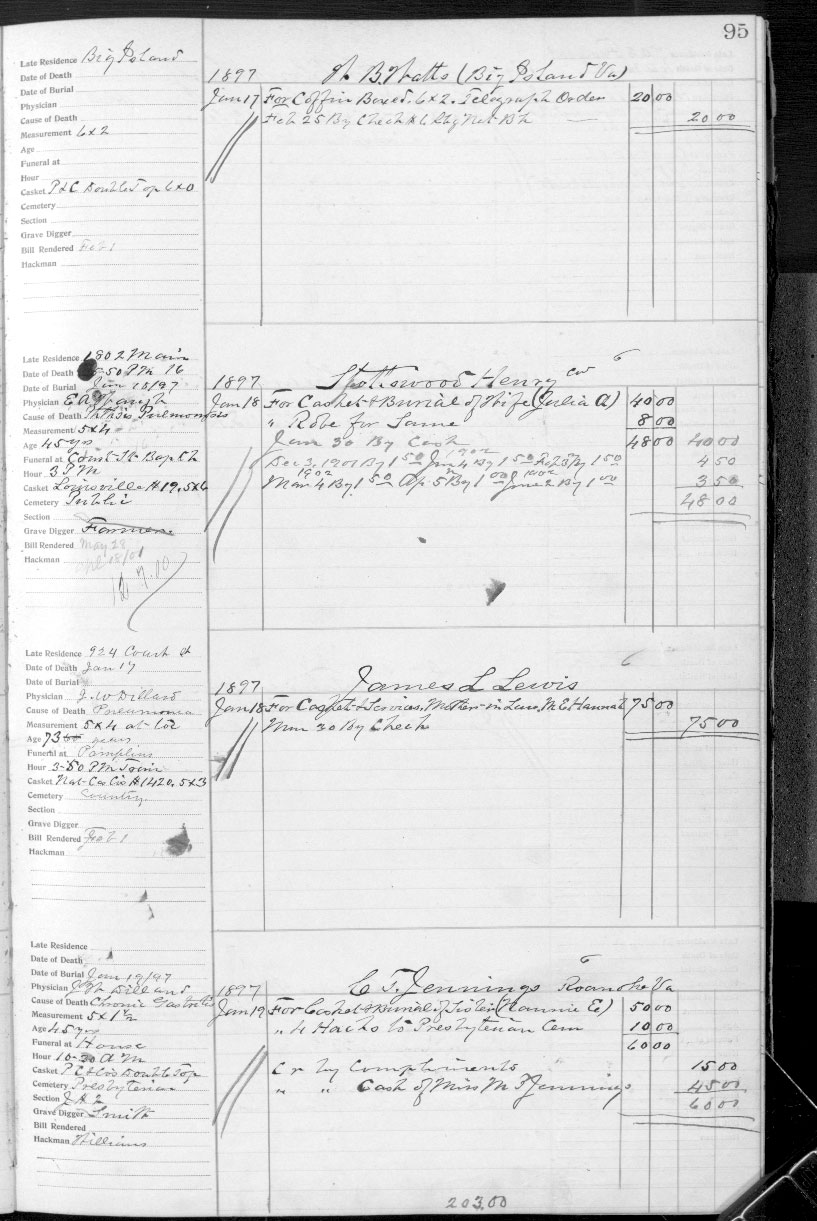 95
Late Residence Big Island
Date of Death
Date of Burial
Physician
Cause of Death
Measurement 6x2
Age
Funeral at
Hour
Casket P&C Double Top 6x0
Cemetery
Section
Grave Digger
Bill Rendered Feb 1
Hackman
1897 B. Watts (Big Island Va)
Jan 17 For Coffin Boxed. 6x2. Telegraph Order 20 00
Feb 25 By Check Nat Bk 20 00
Late Residence 1802 Main
Date of Death 50 PM 16
Date of Burial Jan 18/97
Physician E A
Cause of Death Phthisis Pulmonosis
Measurement 5x4
Age 45 yrs
Funeral at Court St Baptch
Hour 3 PM
Casket Louisville #19, 5x6
Cemetery Public
Section
Grave Digger Farmer
Bill Rendered May 28
18/01
Hackman
1897 Spottswood Henry col 6
Jan 18 For Casket & Burial of Wife (Julia A) 40 00
" Robe for Same 8 00
Jan 30 By Cash 48 00 40 00
Dec 3, 1901 By 1 50 Jan 4 1902 By 1 50 Feb 3 By 1 50 4 50
1902 Mar 4 By 1 50 Ap 5 By 1 00 June 2 1902 By 1 00 3 50
48 00
Late Residence 924 Court St
Date of Death Jan 17
Date of Burial
Physician J. W Dillard
Cause of Death Pneumonia
Measurement 5x4
Age 73 years
Funeral at Pamplins
Hour 3-50 PM Train
Casket Nat-Cas Co #1420, 5x3
Cemetery Country
Section
Grave Digger
Bill Rendered Feb 1
Hackman
1897 James L Lewis 6
Jan 18 For Casket & Services, Mother-in Law, M. E. Hannah 75 00
Mar 20 By Check 75 00
Late Residence
Date of Death
Date of Burial Jan 19/97
Physician Dillard
Cause of Death Chronic Gastritis
Measurement 5x1½
Age 45 yrs
Funeral at House
Hour 10-30 A M
Casket Double Top
Cemetery Presbyterian
Section
Grave Digger Smith
Bill Rendered
Hackman Williams
1897 C T. Jennings Roanoke Va 6
Jan 19 For Casket & Burial of Sister (Nannie E) 50 00
" 4 Hacks to Presbyterian Cem 10 00
60 00
Cr by Compliments 15 00
" " Cash of Miss M F Jennings 45 00
60 00
203.00